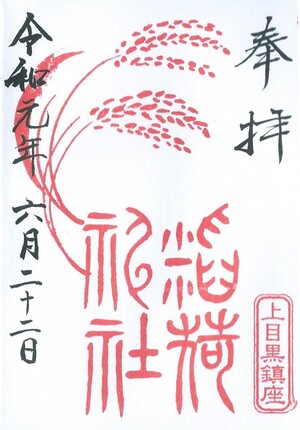 奉拝
上目黒鎮座
稲荷
祀社
令和元年 六月二十二日